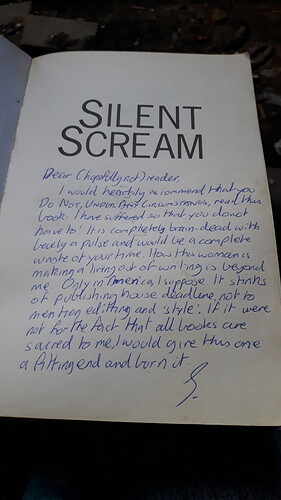 SILENT
SCREAM
Dear (hopefully not) reader,
I would heartily recommend that you
Do Not, Under Any Circumstances, read this
book. I have suffered so that you do not
have to! It is completely brain-dead with
barely a pulse and would be a complete
waste of your time. How this woman is
making a living out of writing is beyond
me. Only in America, I suppose. It stinks
of publishing house deadline, not to
mention editting and 'style'. If it were
not for the fact that all books are
sacred to me, I would give this one
a fitting end and burn it.